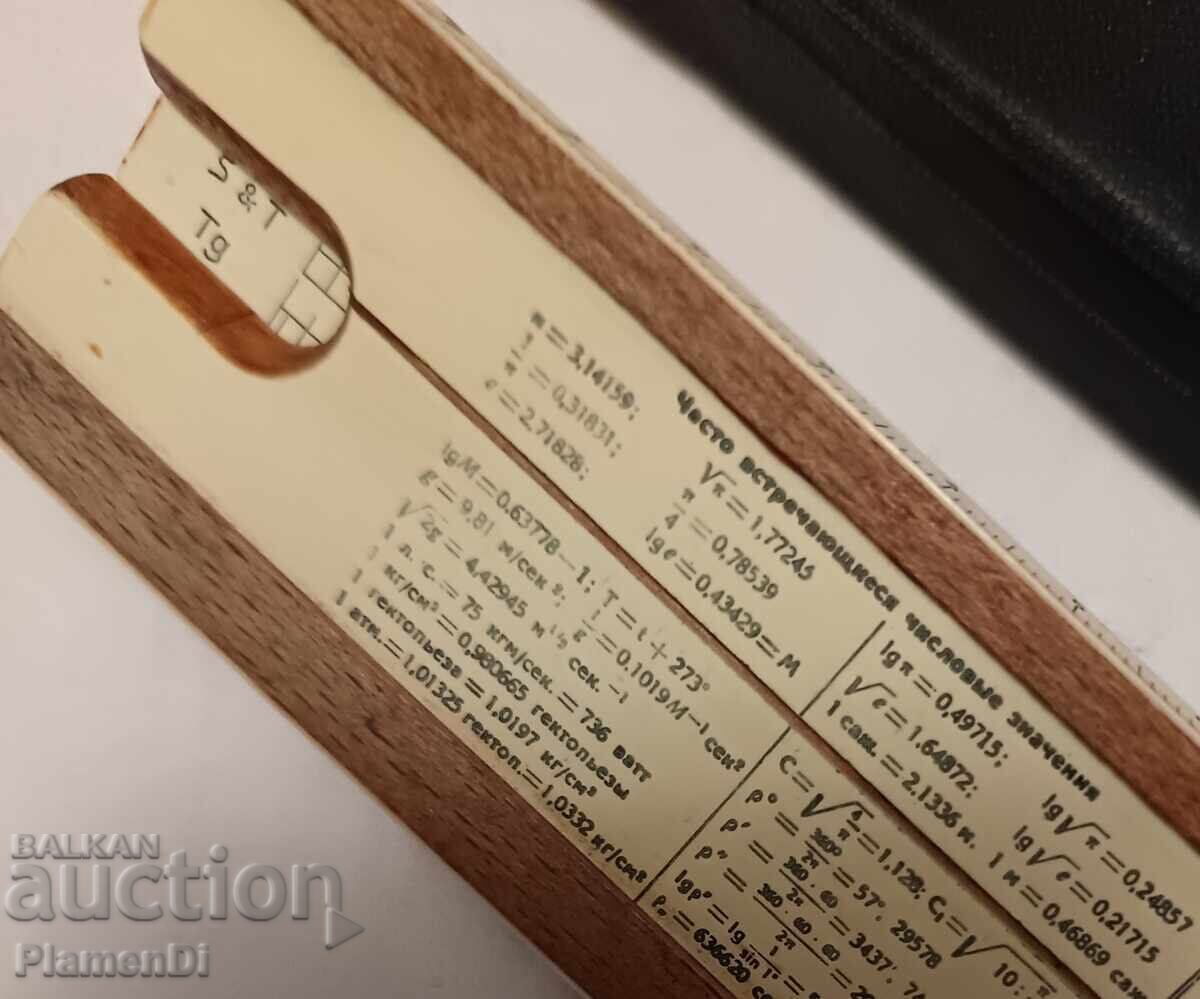 S & T
Tg
Часто встречающиеся числовые значения
π = 3,14159;
1/π = 0,31831;
e = 2,71828;
√π = 1,77245
π/4 = 0,78539
lg e = 0,43429 = M
lg π = 0,49715;
√e = 1.64872;
1 саж. = 2,1336 м.
lg√π = 0.24857
lg√e = 0,21715
1 м = 0,46869 саж
lg M = 0.63778—1; T = t + 273°
g = 9.81 м/сек²; 1/g = 0.1019 м⁻¹ сек²
√2g = 4,42945 м^1/2 сек.⁻¹
1 л. с. = 75 кгм/сек. = 736 ватт
1 кг/см² = 0,980665 гектопьезы
1 гектопьеза = 1,0197 кг/см²
1 атм. = 1,01325 гектоп. = 1,0332 кг/см²
C = √4/π = 1.128; C₁ = √10:π
ρ° = 360°/2π = 57°, 29578
ρ′ = 360 . 60/2π = 3437′, 74
ρ″ = 360 . 60 . 60/2π
lg ρ′ = lg sin 1″
ρ„ = 636620
BALKAN
auction
PlamenDi